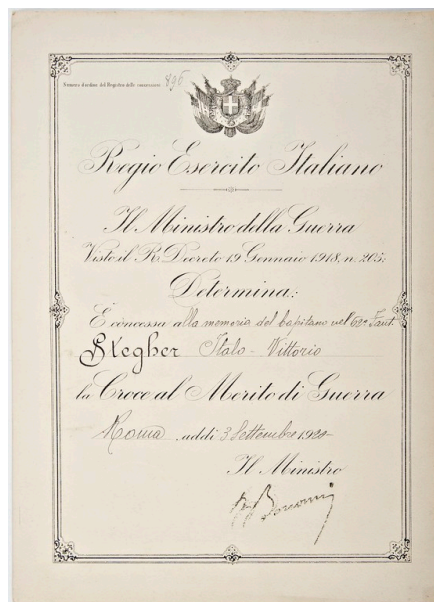 Numero d'ordine del Registro delle concessioni 896
Regio Esercito Italiano
Il Ministro della Guerra
Visto il R. Decreto 19 Gennaio 1918, n. 205;
Determina:
È concessa alla memoria del Capitano nel 62° Fant.
Stegher Italo-Vittorio
la Croce al Merito di Guerra
Roma, addì 3 Settembre 1920
Il Ministro
Bonomi